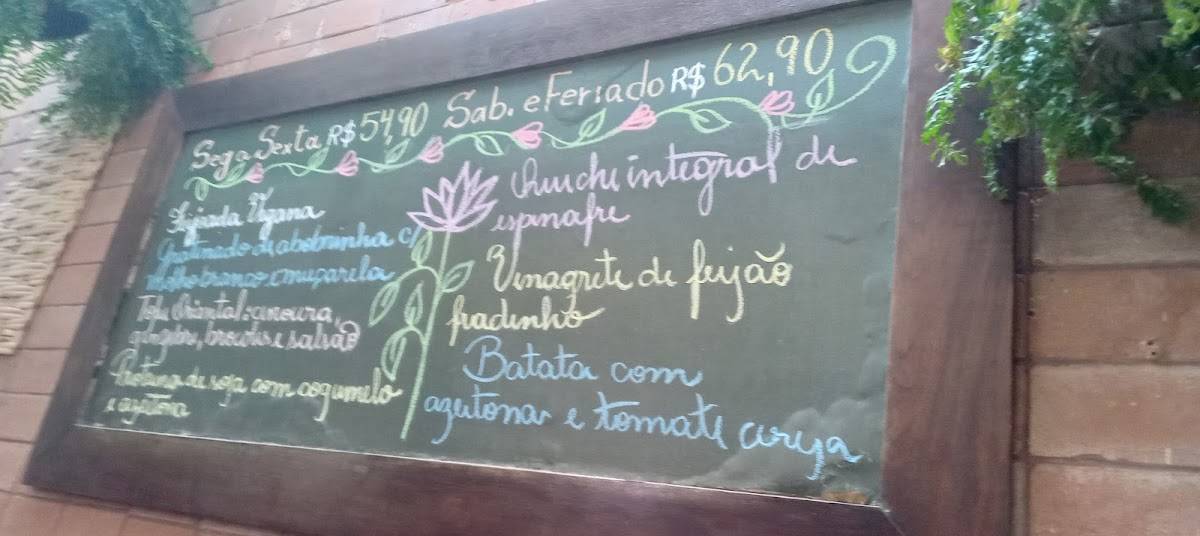 Seg a Sexta R$ 54,90 Sab. e Feriado R$ 62,90
Feijoada Vegana
Gratinado de abobrinha c/
molho branco e muçarela
Tofu Oriental: cenoura,
gengibre, brócolis e salsão
Proteína de soja com cogumelo
e azeitona
integral de
espinafre
Vinagrete de feijão
fradinho
Batata com
azeitona e tomate cereja